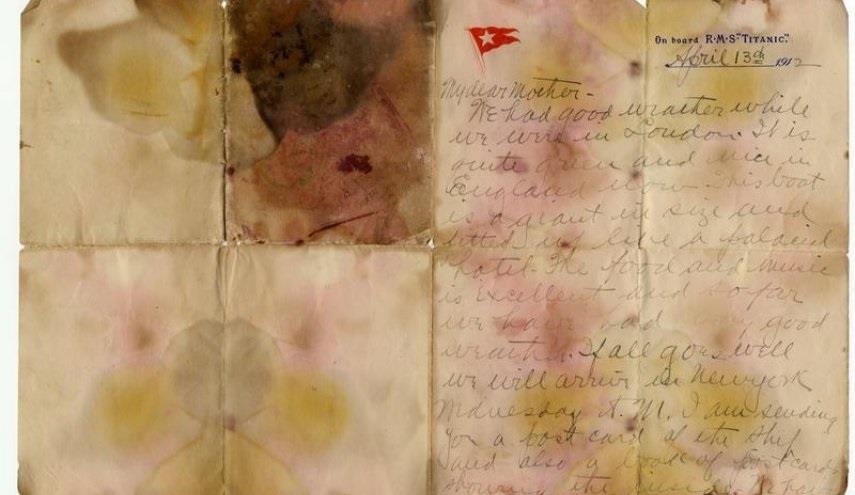 On board R·M·S "TITANIC."
April 13th 1912
My dear Mother -
We had good weather while
we were in London. It is
quite green and nice in
England now. This boat
is a giant in size and
fitted up like a palacial
hotel. The food and music
is excellent and so far
we have had very good
weather. If all goes well
we will arrive in New York
Wednesday A.M. I am sending
you a post card of the ship
and also a book of postcards
showing the inside